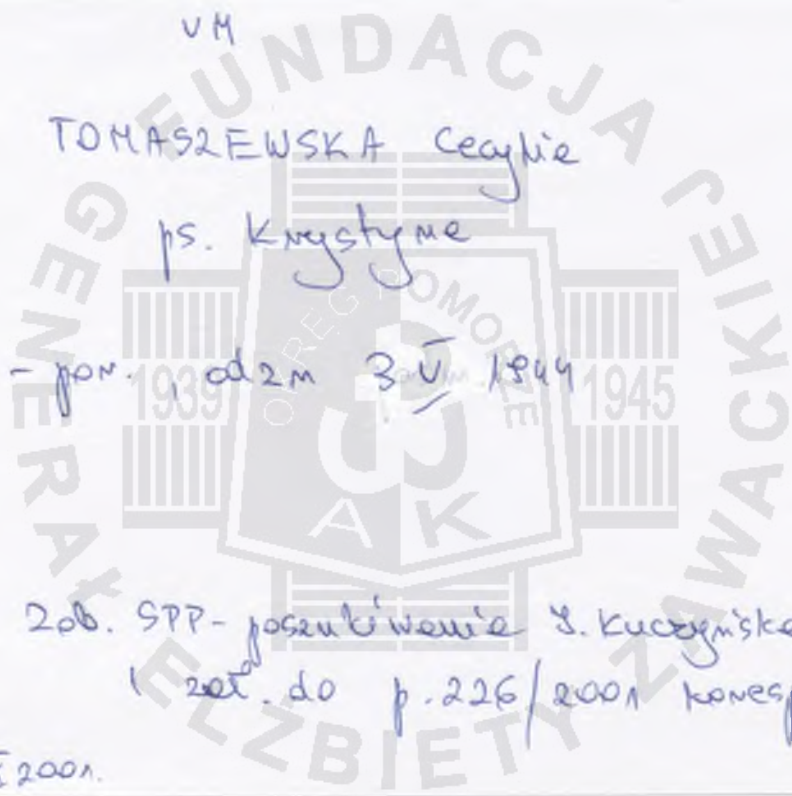 VM
TOMASZEWSKA Cecylia
ps. Krystyna
- por., odzn 3 V 1944
Zob. SPP - poszukiwania J. Kuczyńska
zał. do p. 226/2001 koresp
2001.
FUNDACJA GENERAŁ ELŻBIETY ZAWACKIEJ
OKRĘG POMORZE
1939 1945
AK